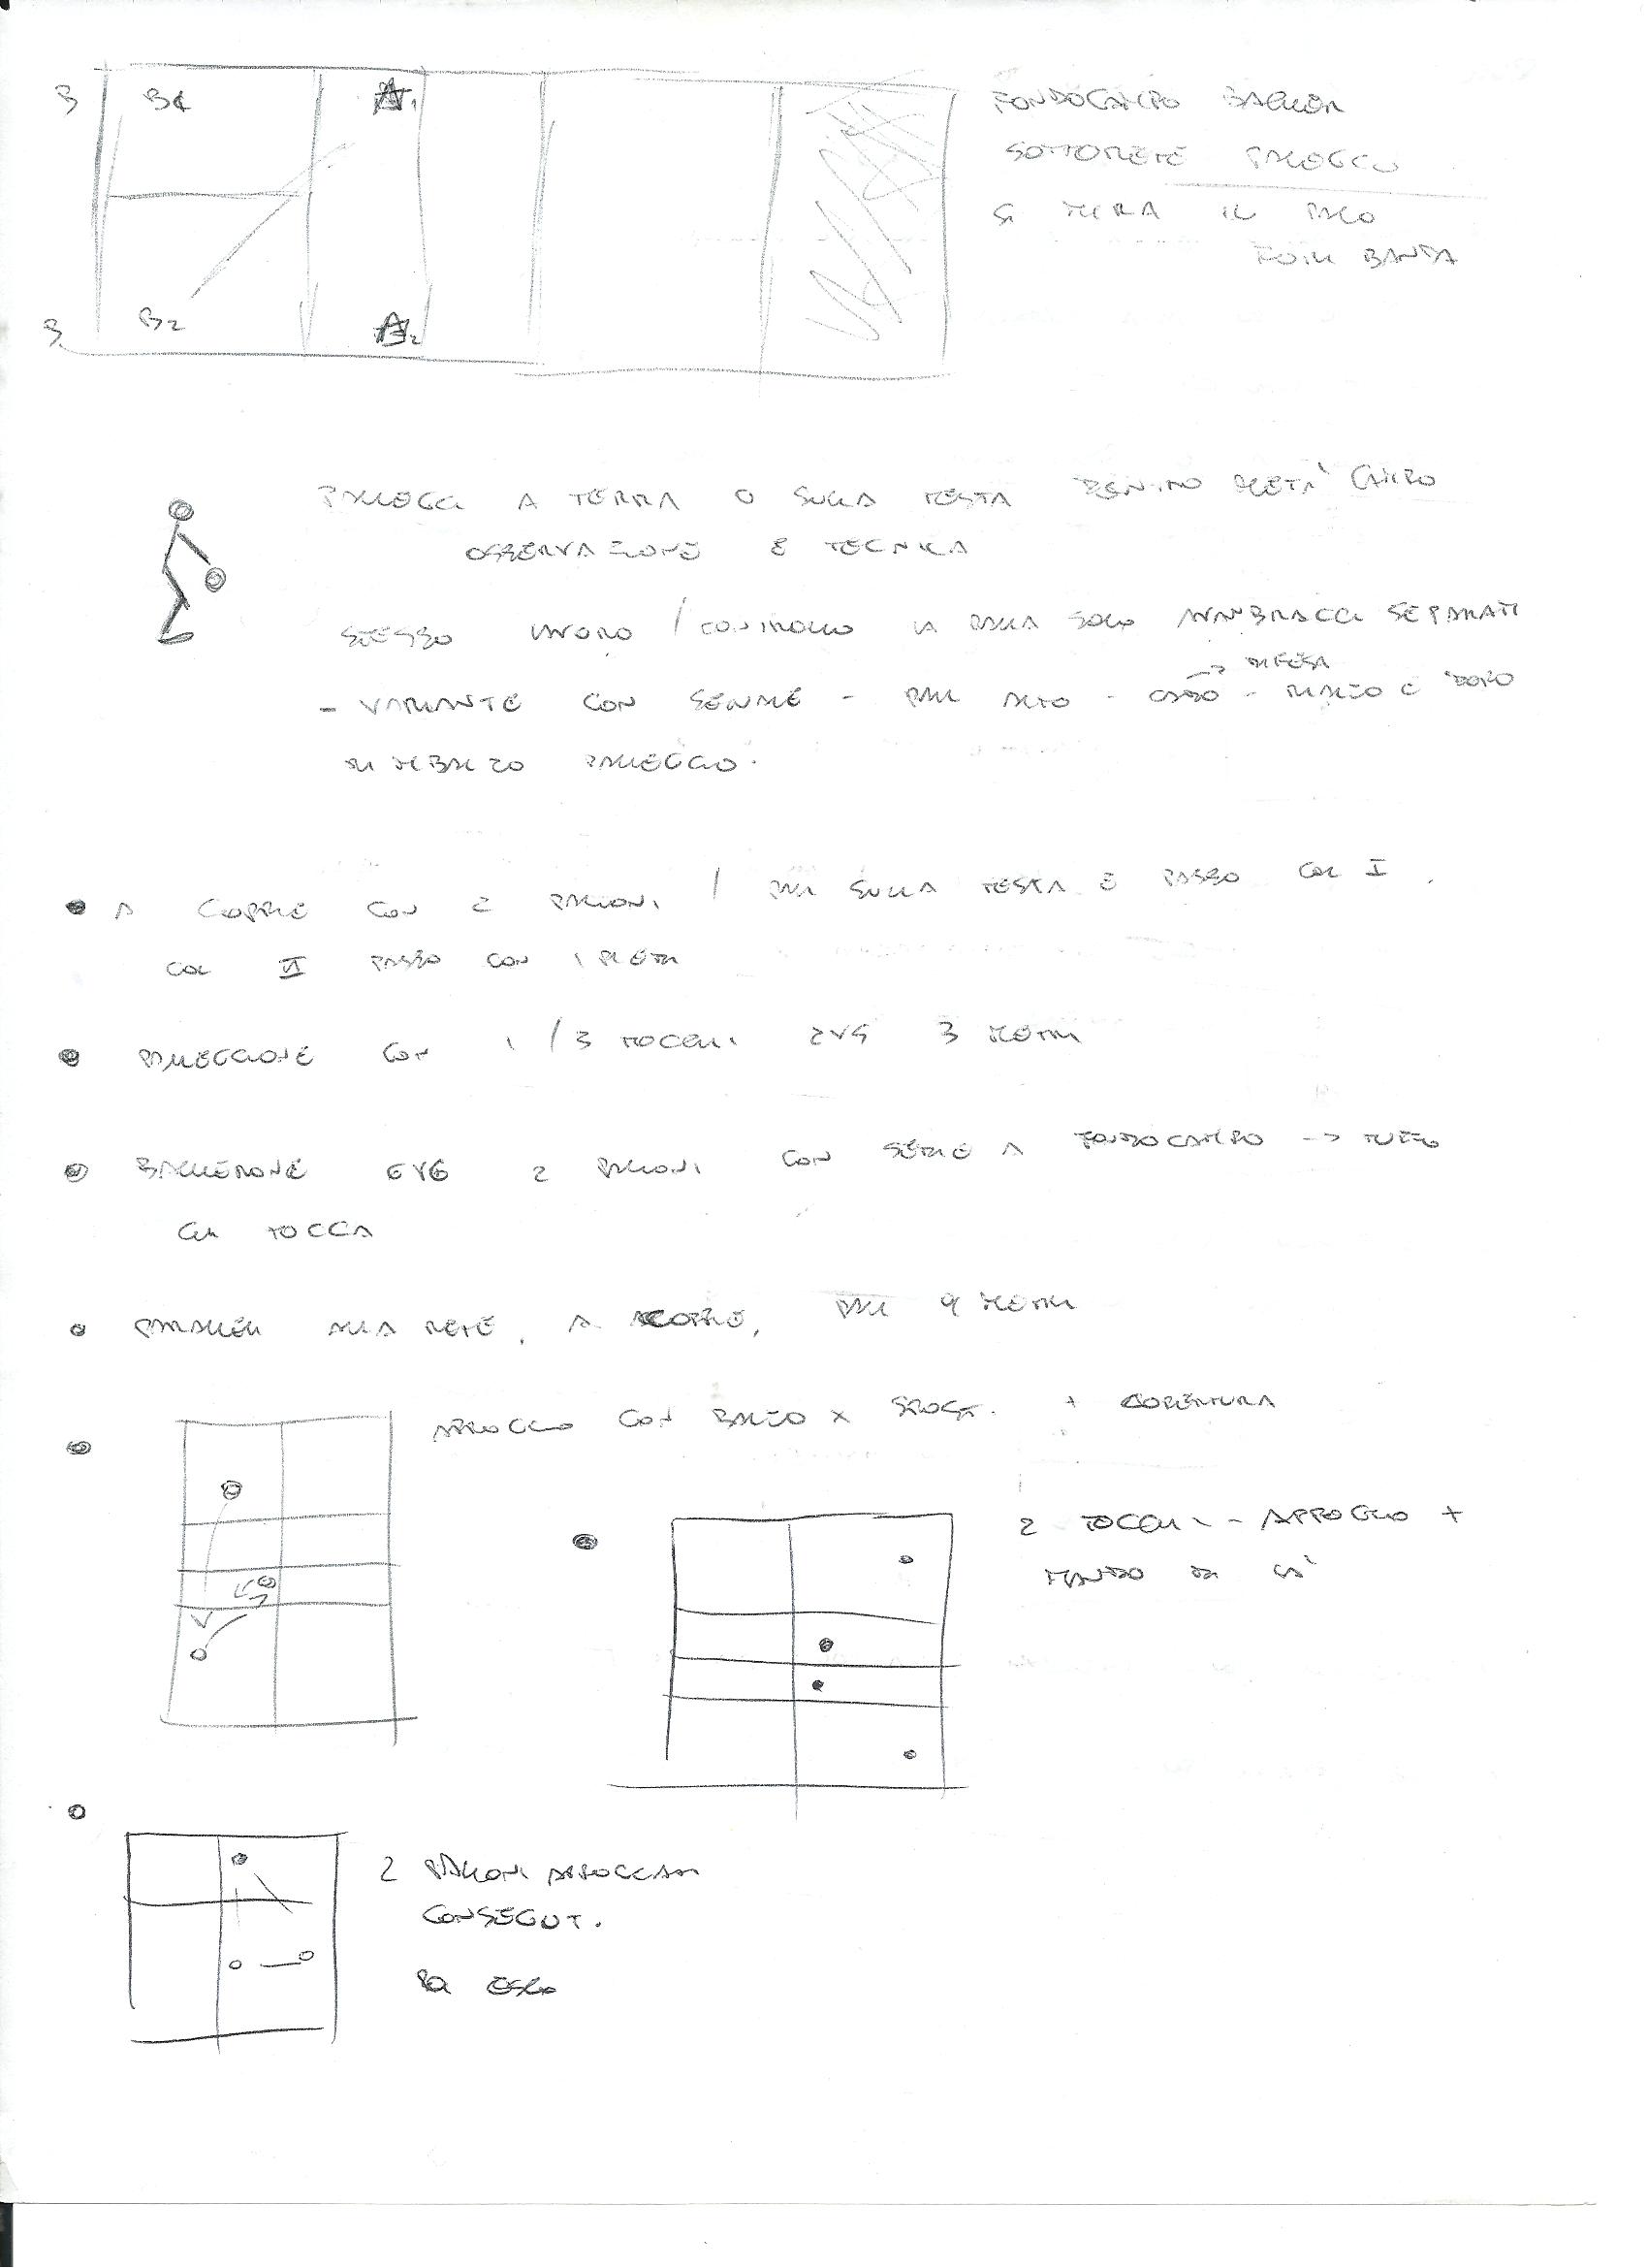 B B4 A1
B B2 A2
FONDOCAMPO BAGHER
SOTTORETE PALLEGGIO
SI TIRA IL
BANDA
PALLEGGI A TERRA O SULLA TESTA METÀ CAMPO
OSSERVAZIONE E TECNICA
STESSO LAVORO / CONTROLLO LA PALLA SOLO AVAMBRACCI SEPARATI
→ DIFESA
- VARIANTE CON SEGNALE - PALL ALTO - - E DOPO
RIMBALZO PALLEGGIO.
A COPPIE CON 2 PALLONI / PALL SULLA TESTA E PASSO COL I.
COL II PASSO CON
PALLEGGIONE CON 1/3 TOCCHI 2VS 3 METRI
BAGHERONE 6V6 2 PALLONI CON SERIE A FONDOCAMPO -> TUFFO
CHI TOCCA
PARALLELI ALLA RETE, A COPPIE, PALL 9 METRI
APPOGGIO CON BALZO X SPOST. + COPERTURA
2 TOCCHI - APPOGGIO +
MANDO DI LÀ
2 PALLONI APPOGGIATI
CONSEGUT.